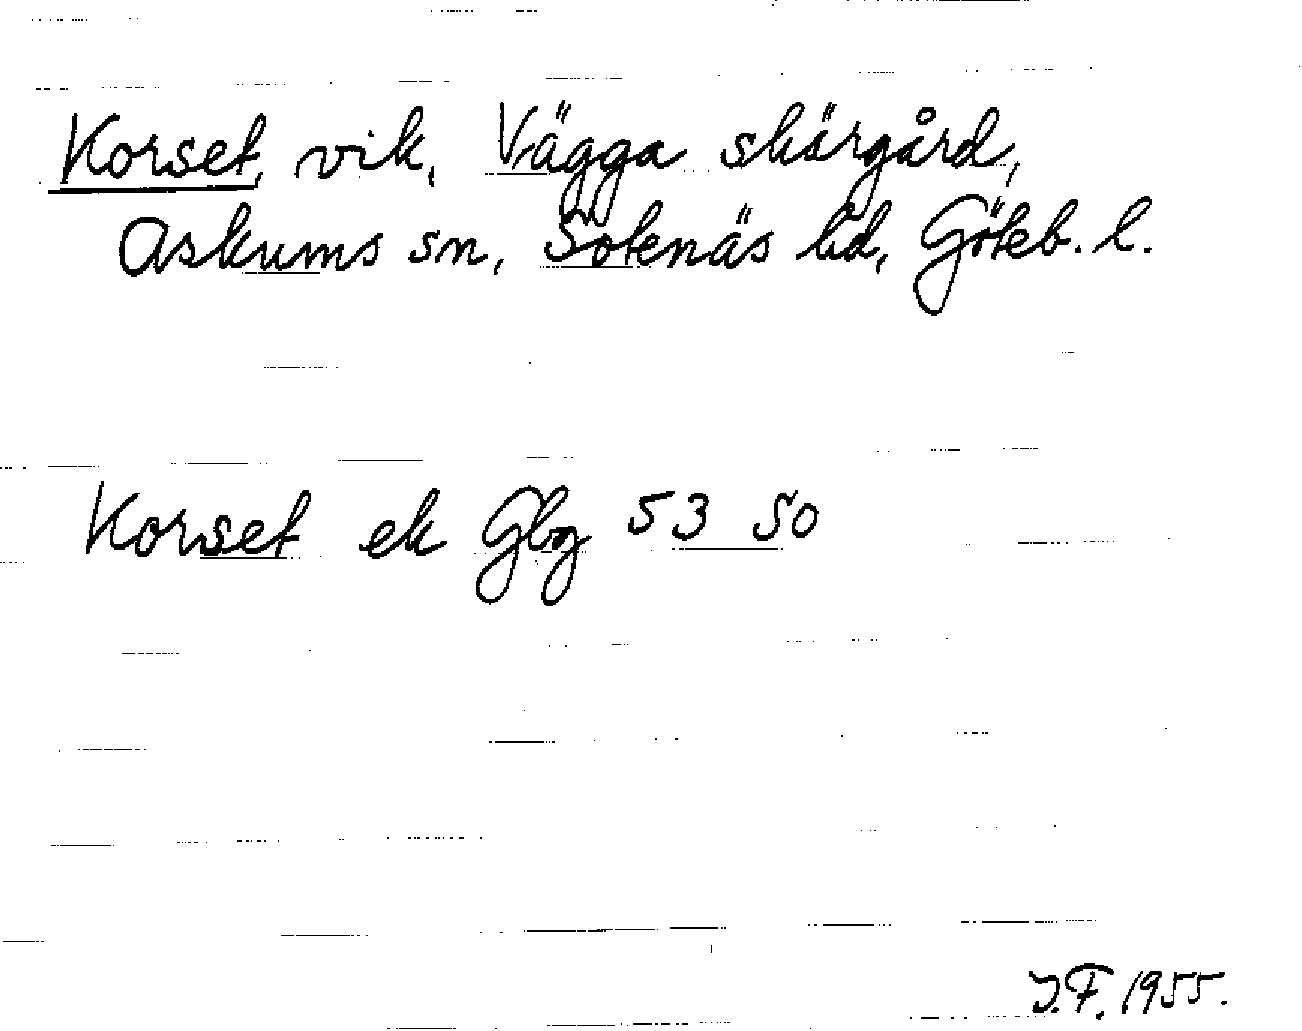 Korset, vik, Vägga skärgård,
Askums sn, Sotenäs hd, Göteb. l.
Korset ek Gbg 53 SO
J.F. 1955.